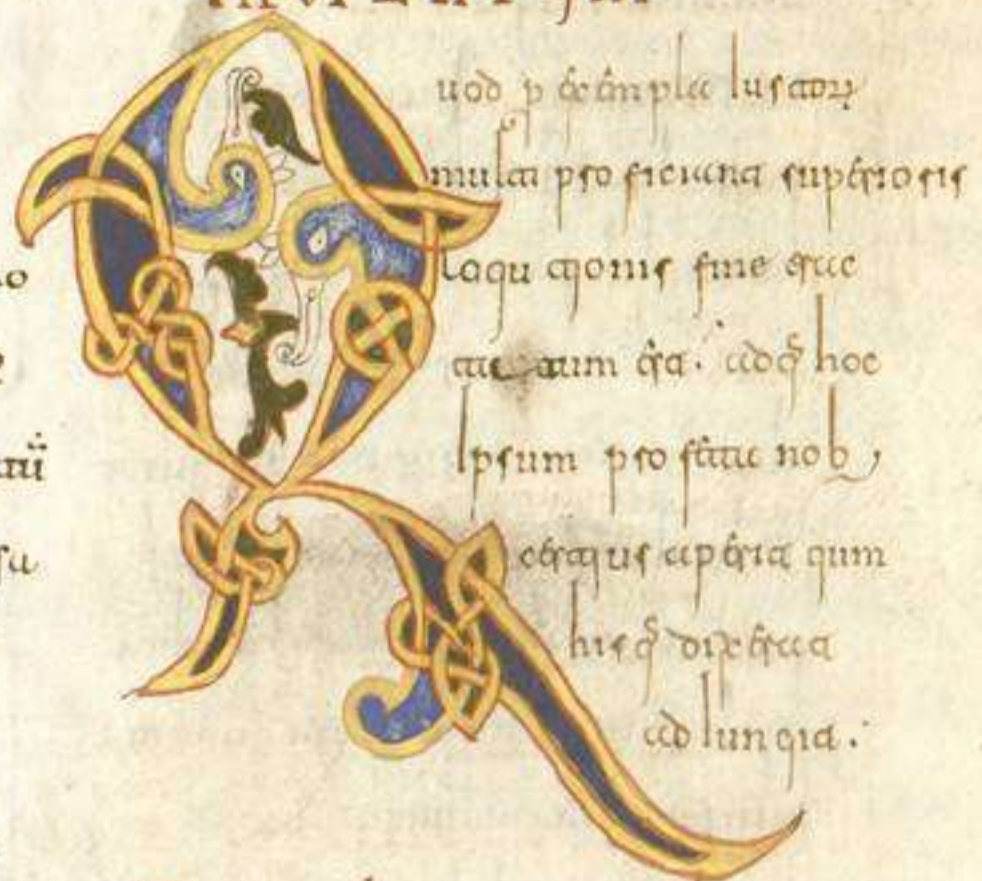 Quod p exempla iustoꝝ
multa proficiant superioris
loqutionis fine trac
tatum est. adq; hoc
ipsum profeta nob;
certius aperit qum
his q; dixerat
adiungit.